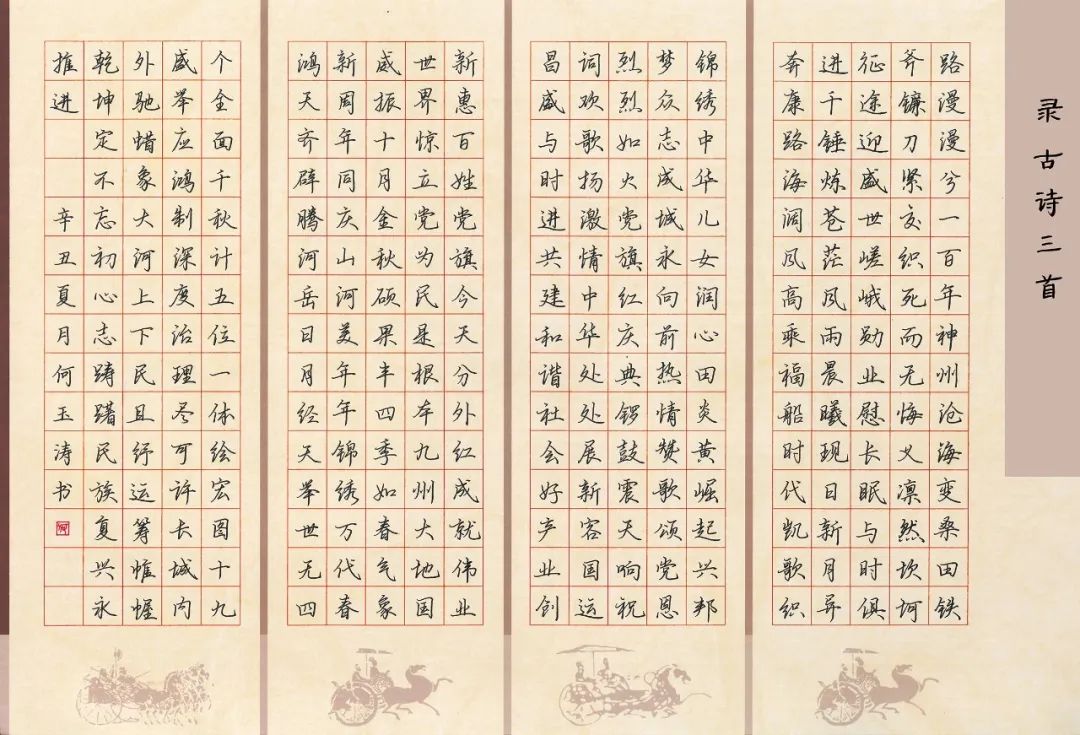 录古诗三首
路漫漫兮一百年神州沧海变桑田铁
斧镰刀紧交织死而无悔义凛然坎坷
征途迎盛世嵯峨勋业慰长眠与时俱
进千锤炼苍茫风雨晨曦现日新月异
奔康路海阔风高乘福船时代凯歌织
锦绣中华儿女润心田炎黄崛起兴邦
梦众志成城永向前热情赞歌颂党恩
烈烈如火党旗红庆典锣鼓震天响祝
词欢歌扬激情中华处处展新容国运
昌盛与时进共建和谐社会好产业创
新惠百姓党旗今天分外红成就伟业
世界惊立党为民是根本九州大地国
威振十月金秋硕果丰四季如春气象
新周年同庆山河美年年锦绣万代春
鸿天齐辟腾河岳日月经天举世无四
个全面千秋计五位一体绘宏图十九
盛举应鸿制深度治理尽可许长城内
外驰蜡象大河上下民且纾运筹帷幄
乾坤定不忘初心志踌躇民族复兴永
推进 辛丑夏月何玉涛书